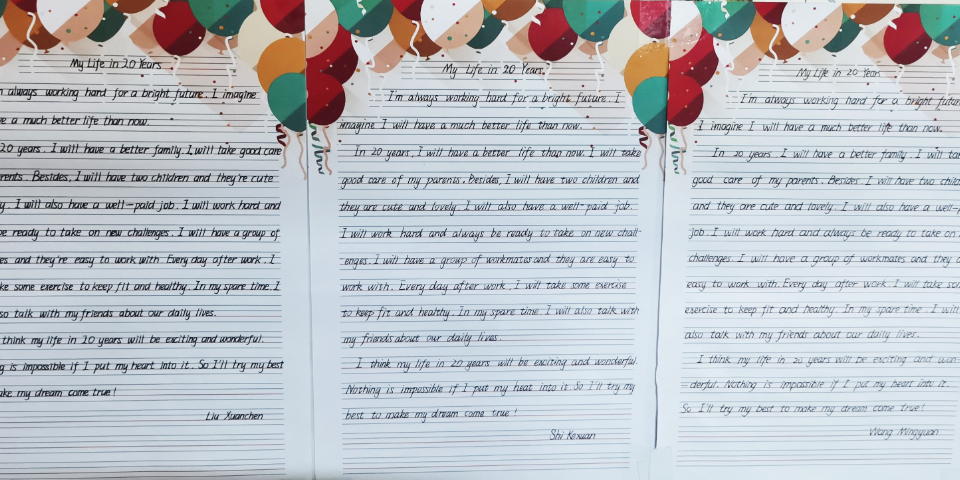 My Life in 20 Years
always working hard for a bright future. I imagine
a much better life than now.
20 years. I will have a better family. I will take good care
Besides, I will have two children and they're cute
I will also have a well-paid job. I will work hard and
be ready to take on new challenges. I will have a group of
and they're easy to work with. Every day after work. I
some exercise to keep fit and healthy. In my spare time. I
talk with my friends about our daily lives.
think my life in 20 years will be exciting and wonderful.
is impossible if I put my heart into it. So I'll try my best
my dream come true!
Liu Xuanchen
My Life in 20 Years.
I'm always working hard for a bright future. I
imagine I will have a much better life than now.
In 20 years, I will have a better life than now. I will take
good care of my parents. Besides, I will have two children and
they are cute and lovely. I will also have a well-paid job.
I will work hard and always be ready to take on new chall-
enges. I will have a group of workmates and they are easy to
work with. Every day after work, I will take some exercise
to keep fit and healthy. In my spare time. I will also talk with
my friends about our daily lives.
I think my life in 20 years will be exciting and wonderful.
Nothing is impossible if I put my heat into it. So I'll try my
best to make my dream come true!
Shi Kexuan
My Life in 20 Years
I'm always working hard for a bright
I imagine I will have a much better life than now.
In 20 years. I will have a better family. I will
good care of my parents. Besides. I will have two
and they are cute and lovely. I will also have a
job. I will work hard and always be ready to take on
challenges. I will have a group of workmates and they
easy to work with. Every day after work. I will take
exercise to keep fit and healthy. In my spare time. I will
also talk with my friends about our daily lives.
I think my life in 20 years will be exciting and won-
derful. Nothing is impossible if I put my heart into it.
So I'll try my best to make my dream come true!
Wang Mingyuan